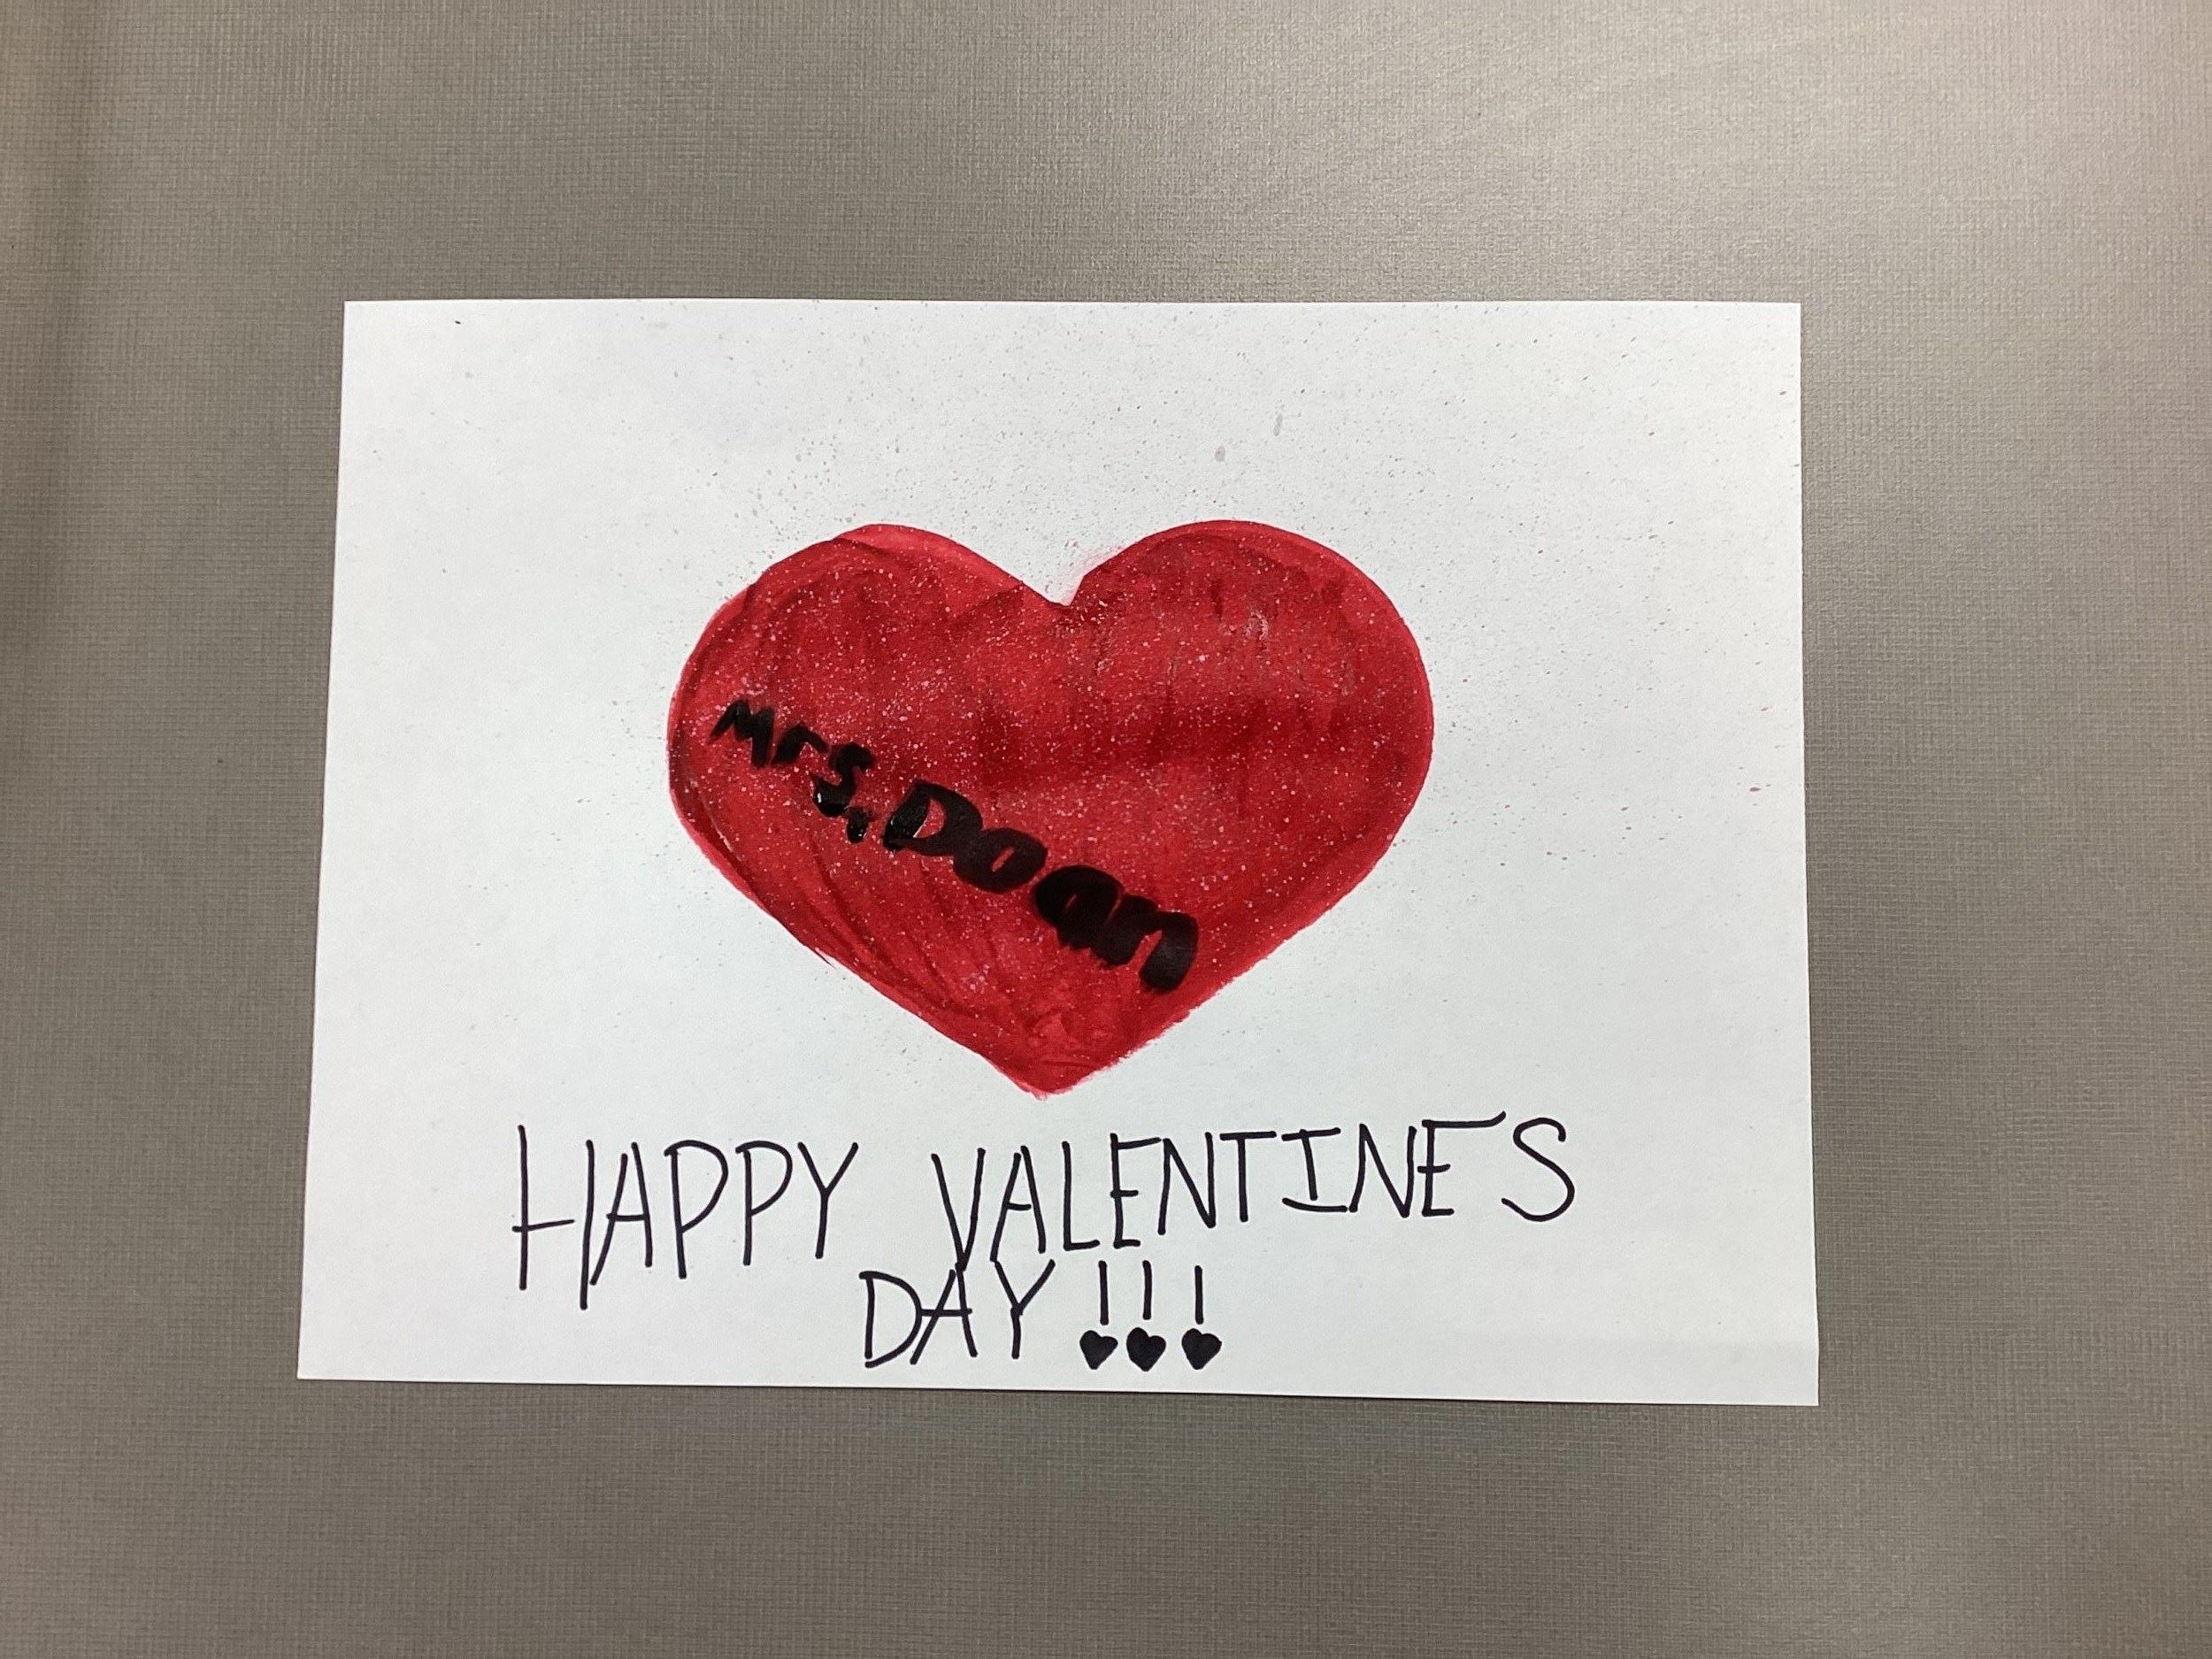 Mrs. Doan
HAPPY VALENTINE'S
DAY!!!